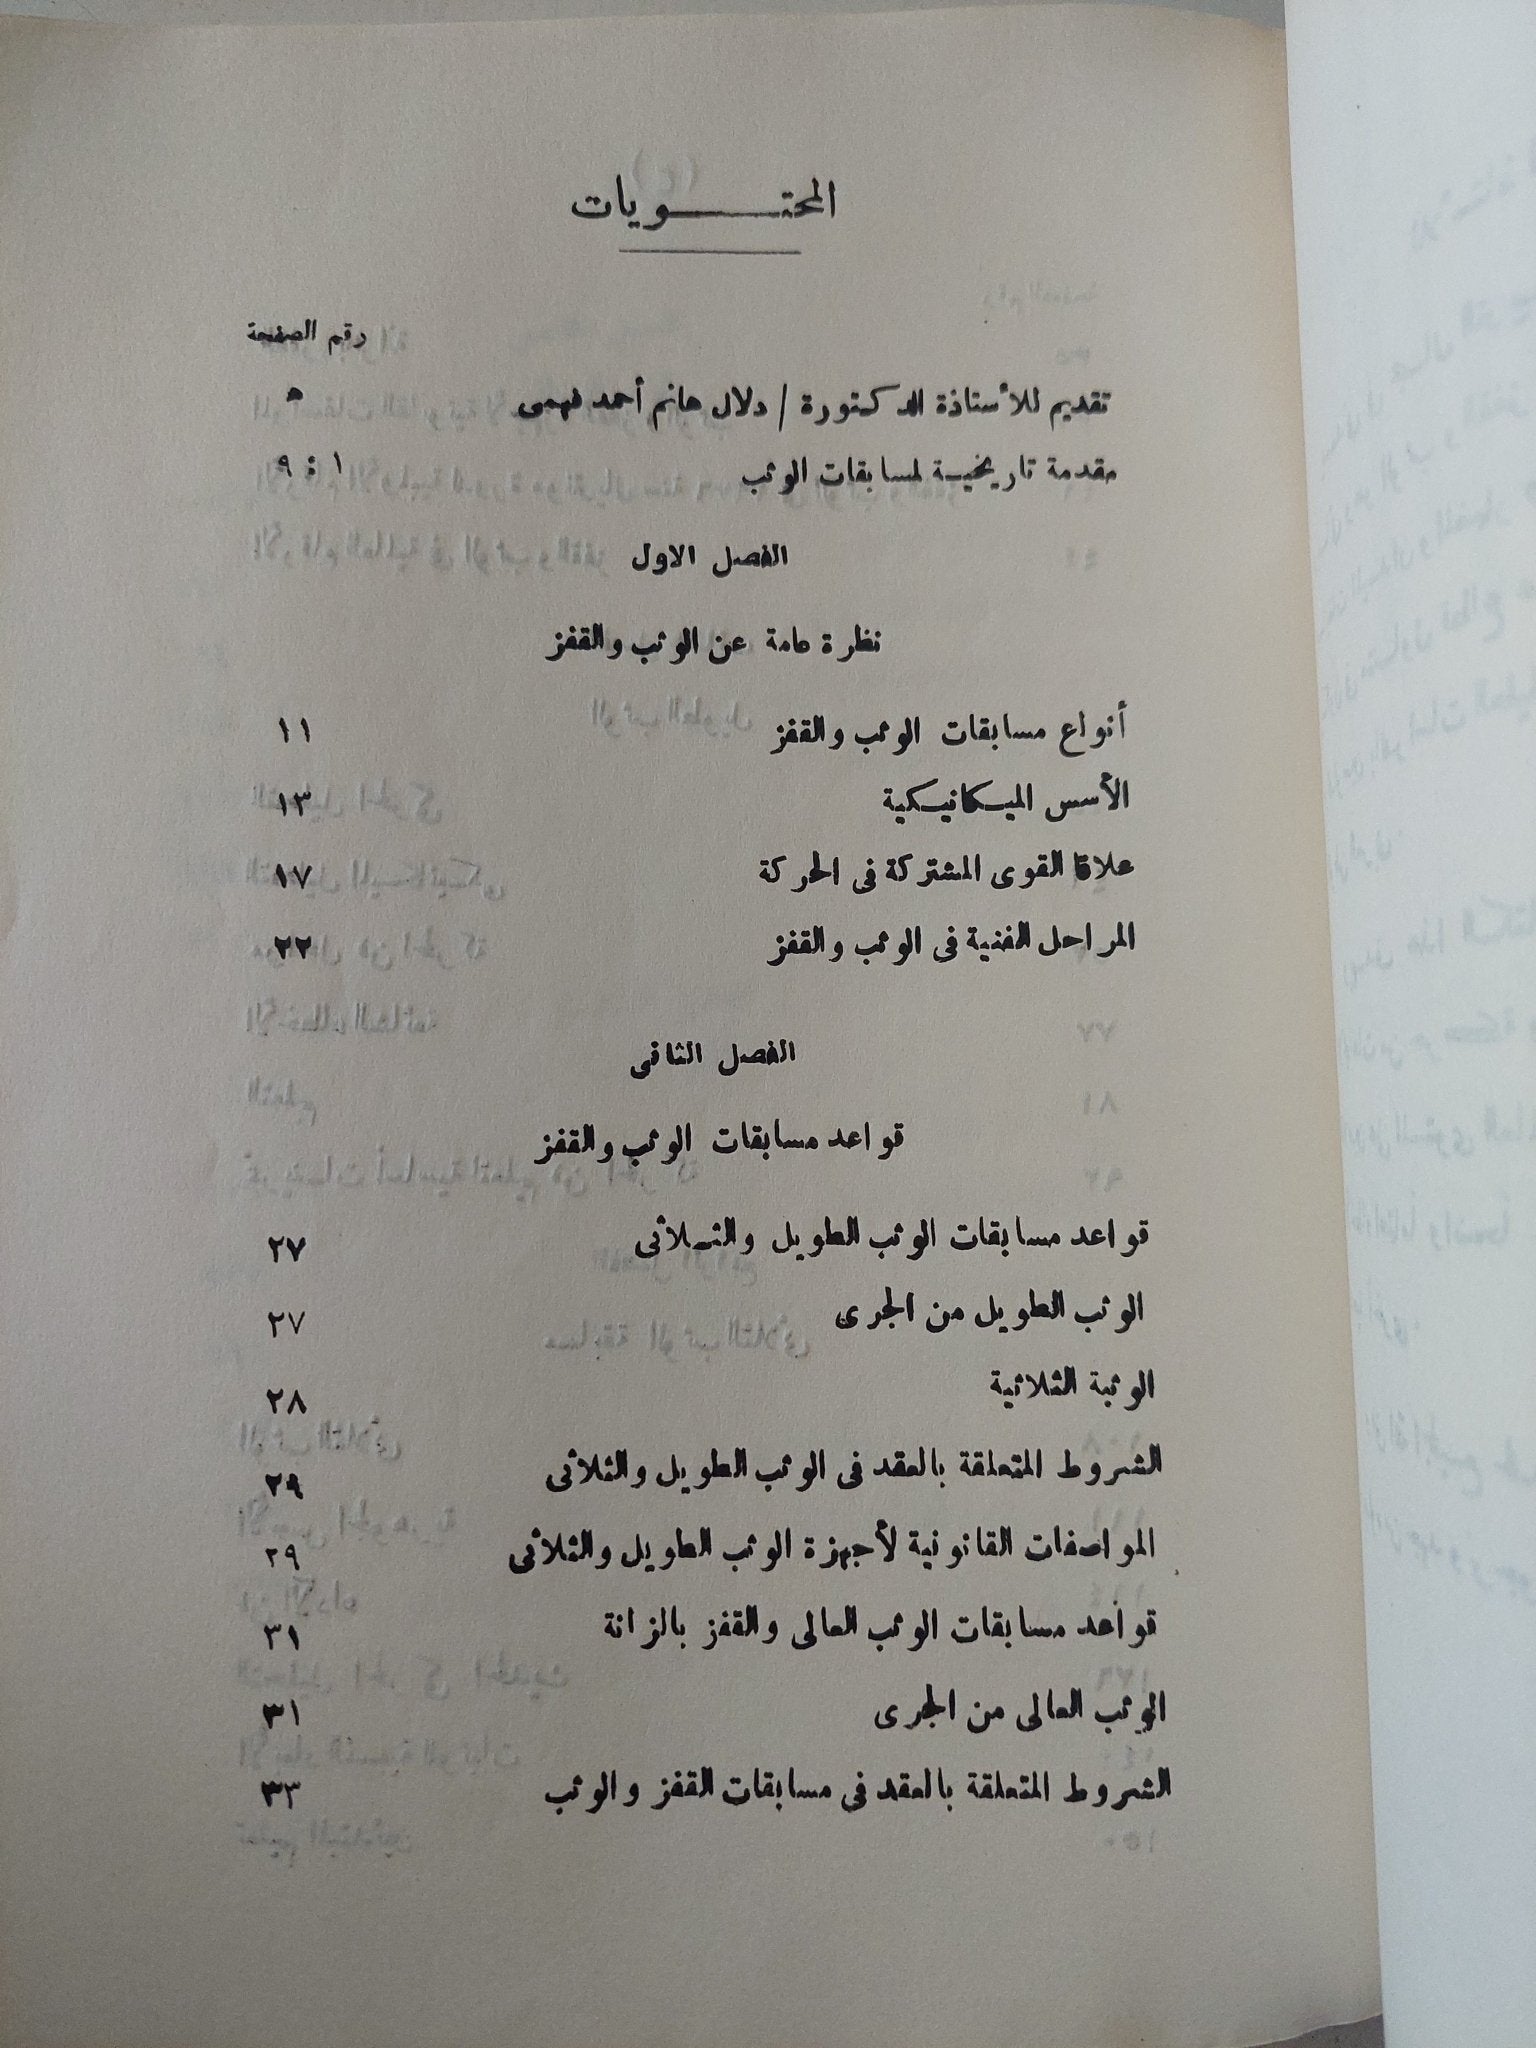 المحتويات
رقم الصفحة
تقديم للأستاذة الدكتورة / دلال هانم أحمد فهمى ه
مقدمة تاريخية لمسابقات الوثب ١ : ٩
الفصل الاول
نظرة عامة عن الوثب والقفز
أنواع مسابقات الوثب والقفز ١١
الأسس الميكانيكية ١٣
علاقة القوى المشتركة فى الحركة ١٧
المراحل الفنية فى الوثب والقفز ٢٢
الفصل الثانى
قواعد مسابقات الوثب والقفز
قواعد مسابقات الوثب الطويل والثلاثى ٢٧
الوثب الطويل من الجرى ٢٧
الوثبة الثلاثية ٢٨
الشروط المتعلقة بالعقد فى الوثب الطويل والثلاثى ٢٩
المواصفات القانونية لأجهزة الوثب الطويل والثلاثى ٢٩
قواعد مسابقات الوثب العالى والقفز بالزانة ٣١
الوثب العالى من الجرى ٣١
الشروط المتعلقة بالعقد فى مسابقات القفز والوثب ٣٣